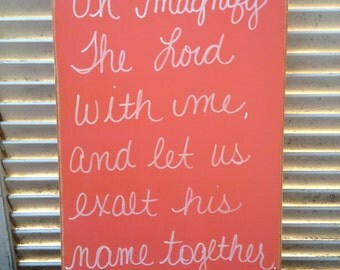 Oh Magnify
The Lord
With me,
and let us
exalt his
name together